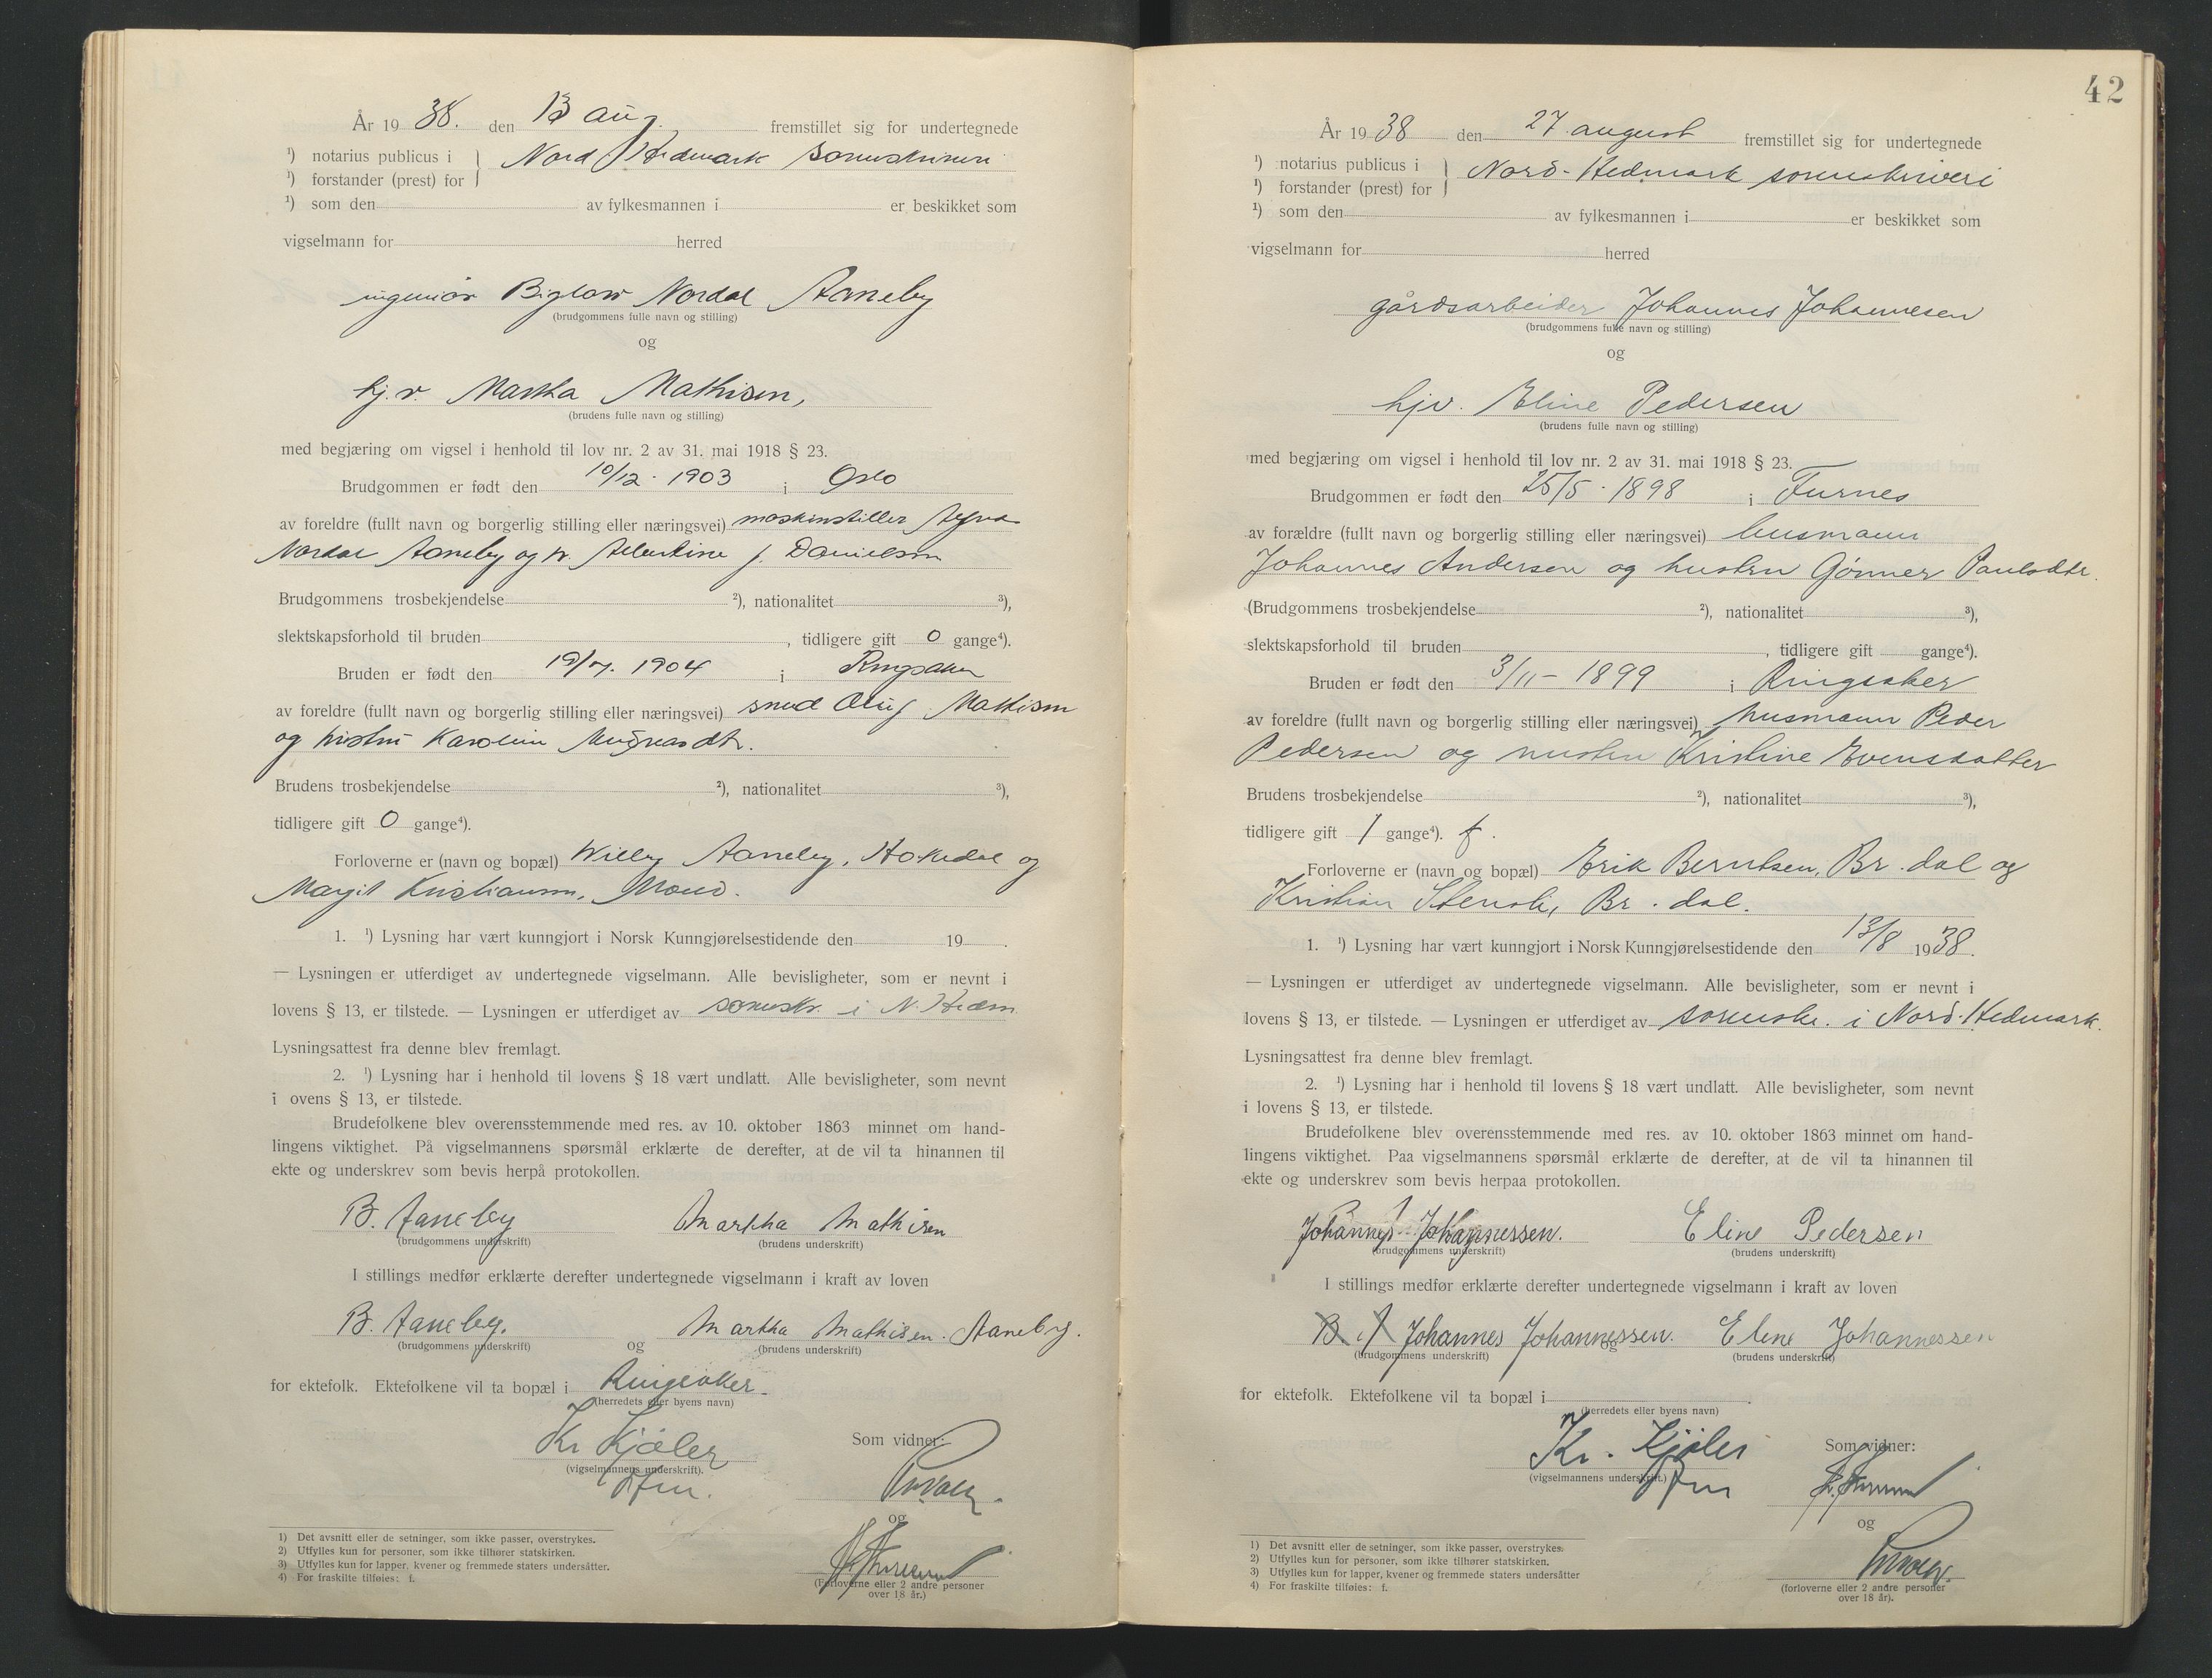 År 19 38. den 13 aug. fremstillet sig for undertegnede
¹) notarius publicus i } Nord Hedmark sorenskriveri
¹) forstander (prest) for
¹) som den av fylkesmannen i er beskikket som
vigselmann for herred
ingeniör Nordal Aaneby
(brudgommens fulle navn og stilling)
og
hj.v. Martha Mathisen,
(brudens fulle navn og stilling)
med begjæring om vigsel i henhold til lov nr. 2 av 31. mai 1918 § 23.
Brudgommen er født den 10/12. 1903 i Oslo
av foreldre (fullt navn og borgerlig stilling eller næringsvei) maskinstiller
Nordal Aaneby og h. Albertine f. Danielsen
Brudgommens trosbekjendelse ²), nationalitet ³),
slektskapsforhold til bruden , tidligere gift 0 gange⁴).
Bruden er født den 1904 i Ringsaker
av foreldre (fullt navn og borgerlig stilling eller næringsvei) smed Mathisen
og hustru
Brudens trosbekjendelse ²), nationalitet ³),
tidligere gift 0 gange⁴).
Forloverne er (navn og bopæl) Willy Aaneby, Hakedal og
Margit Kristiansen,
1. ¹) Lysning har vært kunngjort i Norsk Kunngjørelsestidende den 19 .
— Lysningen er utferdiget av undertegnede vigselmann. Alle bevisligheter, som er nevnt i
lovens § 13, er tilstede. — Lysningen er utferdiget av sorenskr. i N. Hedm.
Lysningsattest fra denne blev fremlagt.
2. ¹) Lysning har i henhold til lovens § 18 vært undlatt. Alle bevisligheter, som nevnt
i ovens § 13, er tilstede.
Brudefolkene blev overensstemmende med res. av 10. oktober 1863 minnet om hand-
lingens viktighet. På vigselmannens spørsmål erklærte de derefter, at de vil ta hinannen til
ekte og underskrev som bevis herpå protokollen.
B. Aaneby Martha Mathisen
(brudgommens underskrift) (brudens underskrift)
I stillings medfør erklærte derefter undertegnede vigselmann i kraft av loven
B. Aaneby. og Martha Mathisen. Aaneby.
(brudgommens underskrift) (brudens underskrift)
for ektefolk. Ektefolkene vil ta bopæl i Ringsaker.
(herredets eller byens navn)
Kr Kjøler Som vidner:
(vigselmannens underskrift).
og
(Forloverne eller 2 andre personer
over 18 år.)
1) Det avsnitt eller de setninger, som ikke passer, overstrykes.
2) Utfylles kun for personer, som ikke tilhører statskirken.
3) Utfylles kun for lapper, kvener og fremmede staters undersåtter.
4) For fraskilte tilføies: f.
42
År 19 38 den 27. august fremstillet sig for undertegnede
¹) notarius publicus i } Nord-Hedmark sorenskriveri
¹) forstander (prest) for
¹) som den av fylkesmannen i er beskikket som
vigselmann for herred
gårdsarbeider Johannes Johannesen
(brudgommens fulle navn og stilling)
og
hjv. Eline Pedersen
(brudens fulle navn og stilling)
med begjæring om vigsel i henhold til lov nr. 2 av 31. mai 1918 § 23.
Brudgommen er født den 25/5. 1898 i Furnes
av forældre (fullt navn og borgerlig stilling eller næringsvei) husmann
Johannes Andersen og hustru Gönner Paulsdtr.
(Brudgommens trosbekjendelse ²), nationalitet ³),
slektskapsforhold til bruden , tidligere gift gange⁴).
Bruden er født den 3/11 - 1899 i Ringsaker
av foreldre (fullt navn og borgerlig stilling eller næringsvei) husmann Peder
Pedersen og hustru Kristine Evensdatter
Brudens trosbekjendelse ²), nationalitet ³),
tidligere gift 1 gange⁴). f.
Forloverne er (navn og bopæl) Erik Berntsen, Br.dal og
Kristian Stensli, Br.dal.
1. ¹) Lysning har vært kunngjort i Norsk Kunngjørelsestidende den 13/8 1938.
— Lysningen er utferdiget av undertegnede vigselmann. Alle bevisligheter, som er nevnt i
lovens § 13, er tilstede. — Lysningen er utferdiget av sorenskr. i Nord-Hedmark.
Lysningsattest fra denne blev fremlagt.
2. ¹) Lysning har i henhold til lovens § 18 vært undlatt. Alle bevisligheter, som nevnt
i lovens § 13, er tilstede.
Brudefolkene blev overensstemmende med res. av 10. oktober 1863 minnet om hand-
lingens viktighet. Paa vigselmannens spørsmål erklærte de derefter, at de vil ta hinannen til
ekte og underskrev som bevis herpaa protokollen.
Johannes Johannessen. Eline Pedersen
(brudgommens underskrift) (brudens underskrift)
I stillings medfør erklærte derefter undertegnede vigselmann i kraft av loven
B. A Johannes Johannessen. og Eline Johannessen
(brudgommens underskrift) (brudens underskrift)
for ektefolk. Ektefolkene vil ta bopæl i .
(herredets eller byens navn)
Kr. Kjøler Som vidner:
(vigselmannens underskrift.)
og
(forloverne eller 2 andre personer
over 18 år).
1) Det avsnitt eller de setninger, som ikke passer, overstrykes.
2) Utfylles kun for personer, som ikke tilhører statskirken.
3) Utfylles kun for lapper, kvener og fremmede staters undersåtter
4) For fraskilte tilføies: f.